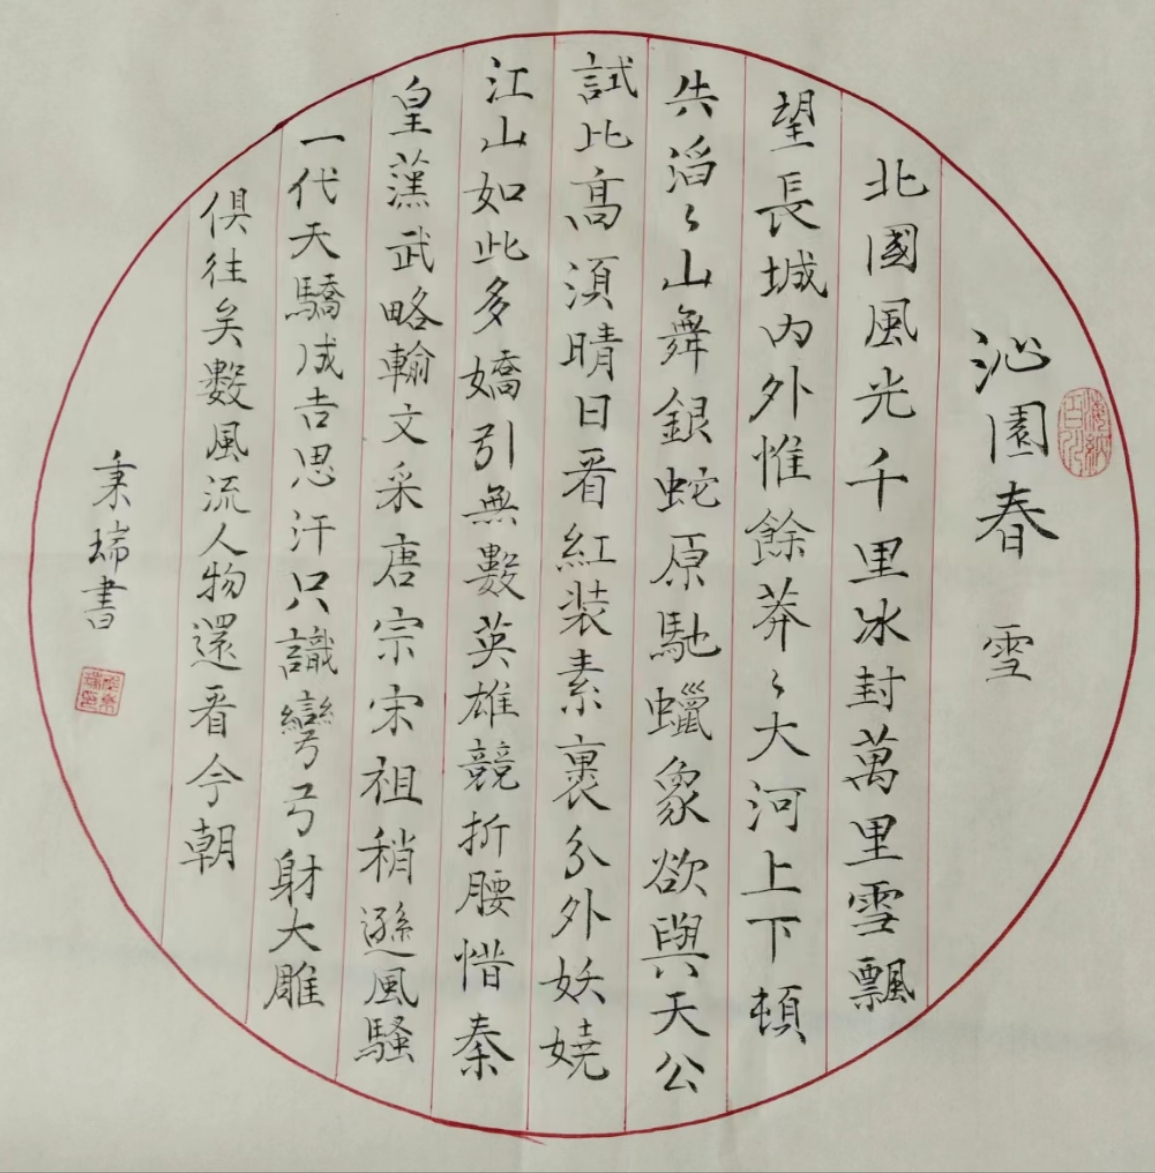 海納百川
沁園春 雪
北國風光千里冰封萬里雪飄
望長城内外惟餘莽〻大河上下頓
失滔〻山舞銀蛇原馳蠟象欲與天公
試比髙湏晴日看紅装素裹分外妖嬈
江山如此多嬌引無數英雄競折腰惜秦
皇漢武略輸文采唐宗宋祖稍遜風騷
一代天驕成吉思汗只識彎弓射大雕
俱往矣數風流人物還看今朝
秉瑞書